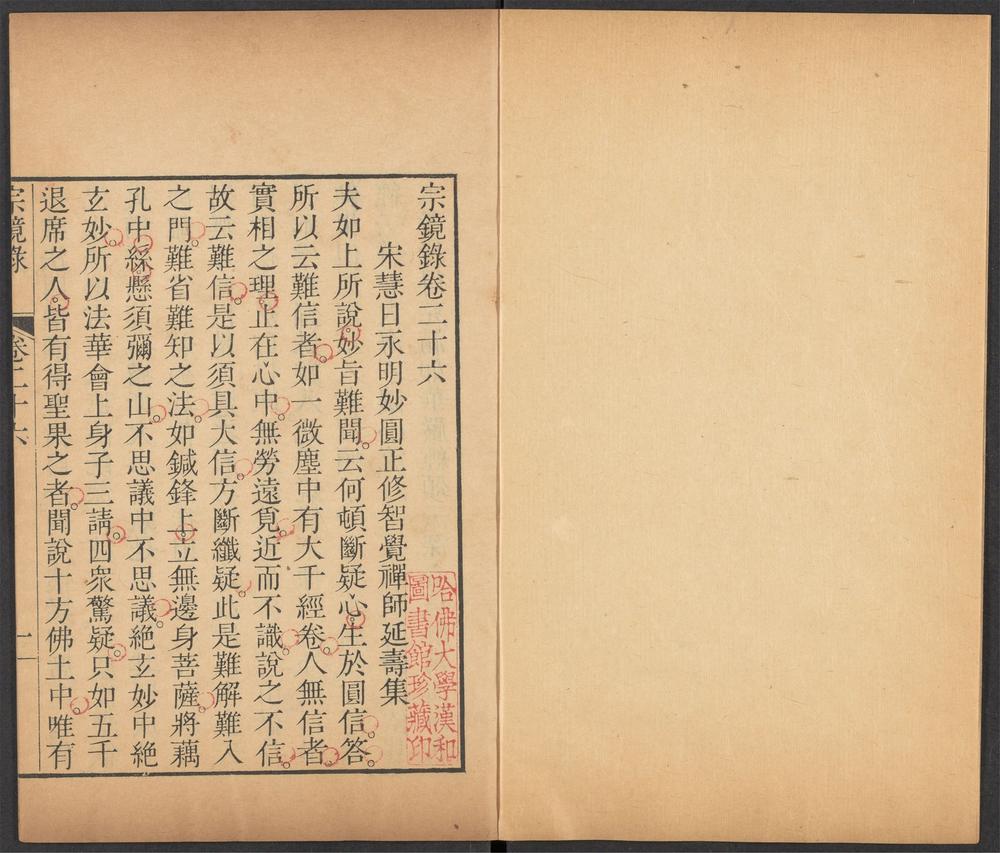 宗鏡錄卷二十六
宋慧日永明妙圓正修智覺禪師延壽集
夫如上所說妙旨難聞云何頓斷疑心生於圓信答。
所以云難信者如一微塵中有大千經卷人無信者
實相之理止在心中無勞遠覓近而不識說之不信。
故云難信是以須具大信方斷纖疑。此是難解難入
之門。難省難知之法。如鍼鋒上立無邊身菩薩。將藕
孔中絲懸須彌之山。不思議中不思議。絕玄妙中絕
玄妙。所以法華會上身子三請。四衆驚疑。只如五千
退席之人。皆有得聖果之者。聞說十方佛土中。唯有
宗鏡錄 卷二十六 一
哈佛大學漢和
圖書館珍藏印